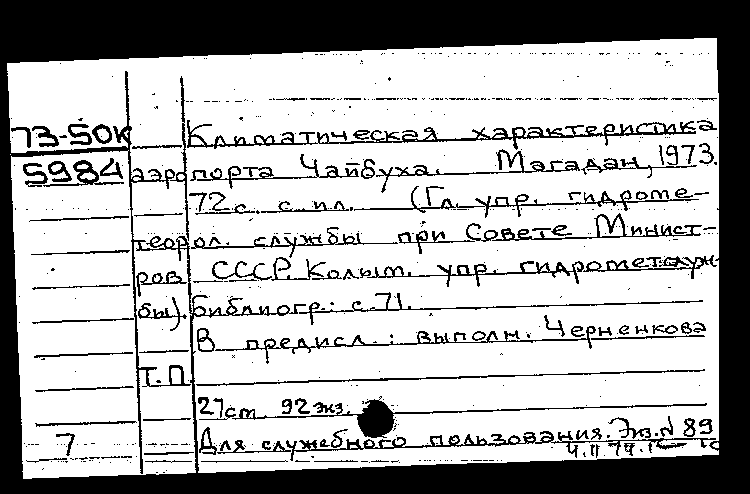 73-50К Климатическая характеристика
5984 аэропорта Чайбуха. Магадан, 1973.
72 с. с ил. (Гл. упр. гидроме-
теорол. службы при Совете Минист-
ров СССР. Колым. упр. гидрометслуж-
бы). Библиогр.: с. 71.
В предисл.: выполн. Черненкова
Т. П.
27 см 92 экз.
7 Для служебного пользования. Экз. N 89